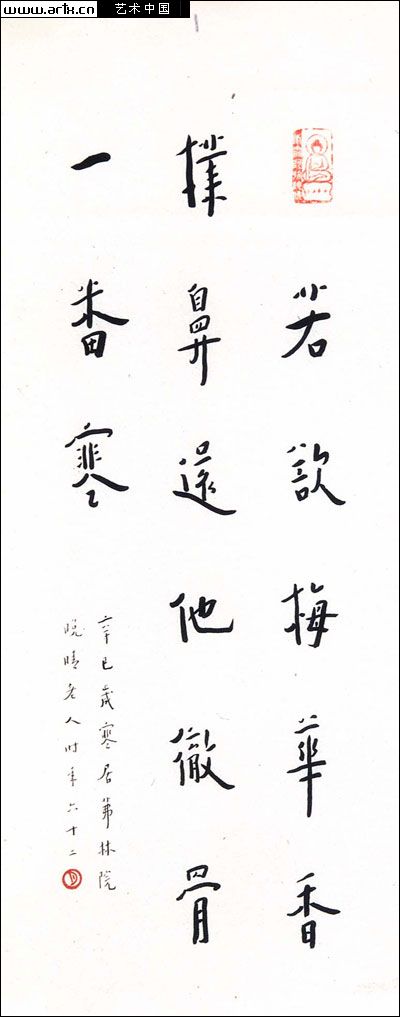 www.artx.cn 艺术中国
若欲梅華香
撲鼻還他徹骨
一番寒
辛巳歲寒居茀林院
晚晴老人时年六十二